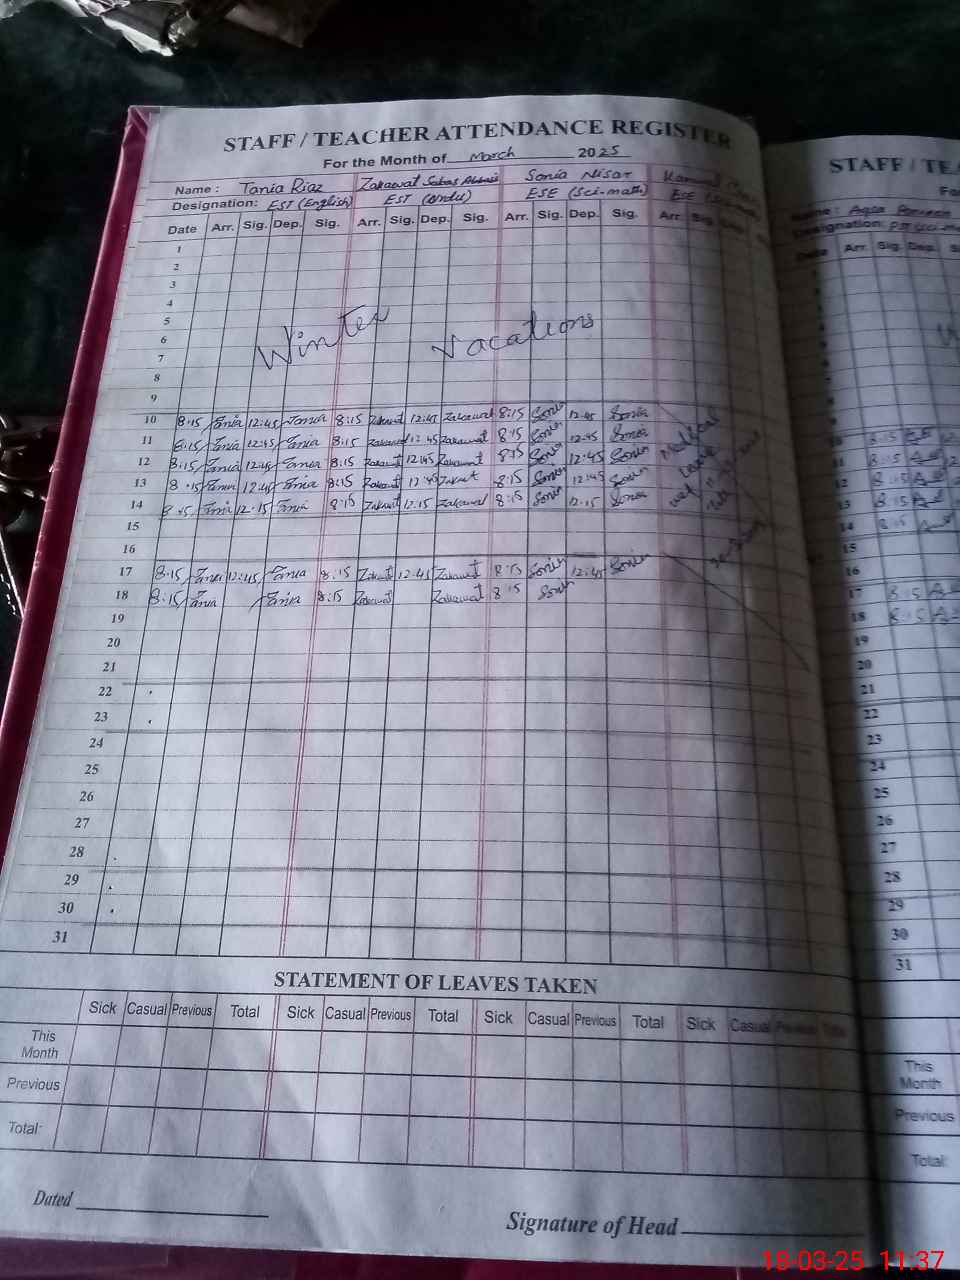 STAFF / TEACHER ATTENDANCE REGISTER
For the Month of March 2025
Name : Tania Riaz Zakawat Sonia Nisar
Designation: EST (English) EST (Urdu) ESE (Sci-math)
Date Arr. Sig. Dep. Sig. Arr. Sig. Dep. Sig. Arr. Sig. Dep. Sig. Arr.
1
2
3
4
5
6
7
8
Winter Vacations
9
10 8:15 Tania 12:45 Tania 8:15 Zakawat 12:45 Zakawat 8:15 Sonia 12:45 Sonia
11 8:15 Tania 12:45 Tania 8:15 Zakawat 12:45 Zakawat 8:15 Sonia 12:45 Sonia
12 8:15 Tania 12:45 Tania 8:15 Zakawat 12:45 Zakawat 8:15 Sonia 12:45 Sonia
13 8:15 Tania 12:45 Tania 8:15 Zakawat 12:45 Zakawat 8:15 Sonia 12:45 Sonia
14 8:15 Tania 12:15 Tania 8:15 Zakawat 12:15 Zakawat 8:15 Sonia 12:15 Sonia
Medical
Leave
15
16
17 8:15 Tania 12:45 Tania 8:15 Zakawat 12:45 Zakawat 8:15 Sonia 12:45 Sonia
18 8:15 Tania Tania 8:15 Zakawat Zakawat 8:15 Sonia
19
20
21
22
23
24
25
26
27
28
29
30
31
STATEMENT OF LEAVES TAKEN
Sick Casual Previous Total Sick Casual Previous Total Sick Casual Previous Total Sick Casual Previous Total
This Month
Previous
Total:
Dated
Signature of Head
STAFF / TEA
Name : Aqsa
Designation:
Date Arr. Sig. Dep.
10 8:15
11 8:15
12 8:15
13 8:15
14 8:15
15
16
17 8:15
18 8:15
19
20
21
22
23
24
25
26
27
28
29
30
31
This Month
Previous
Total
18-03-25 11:37